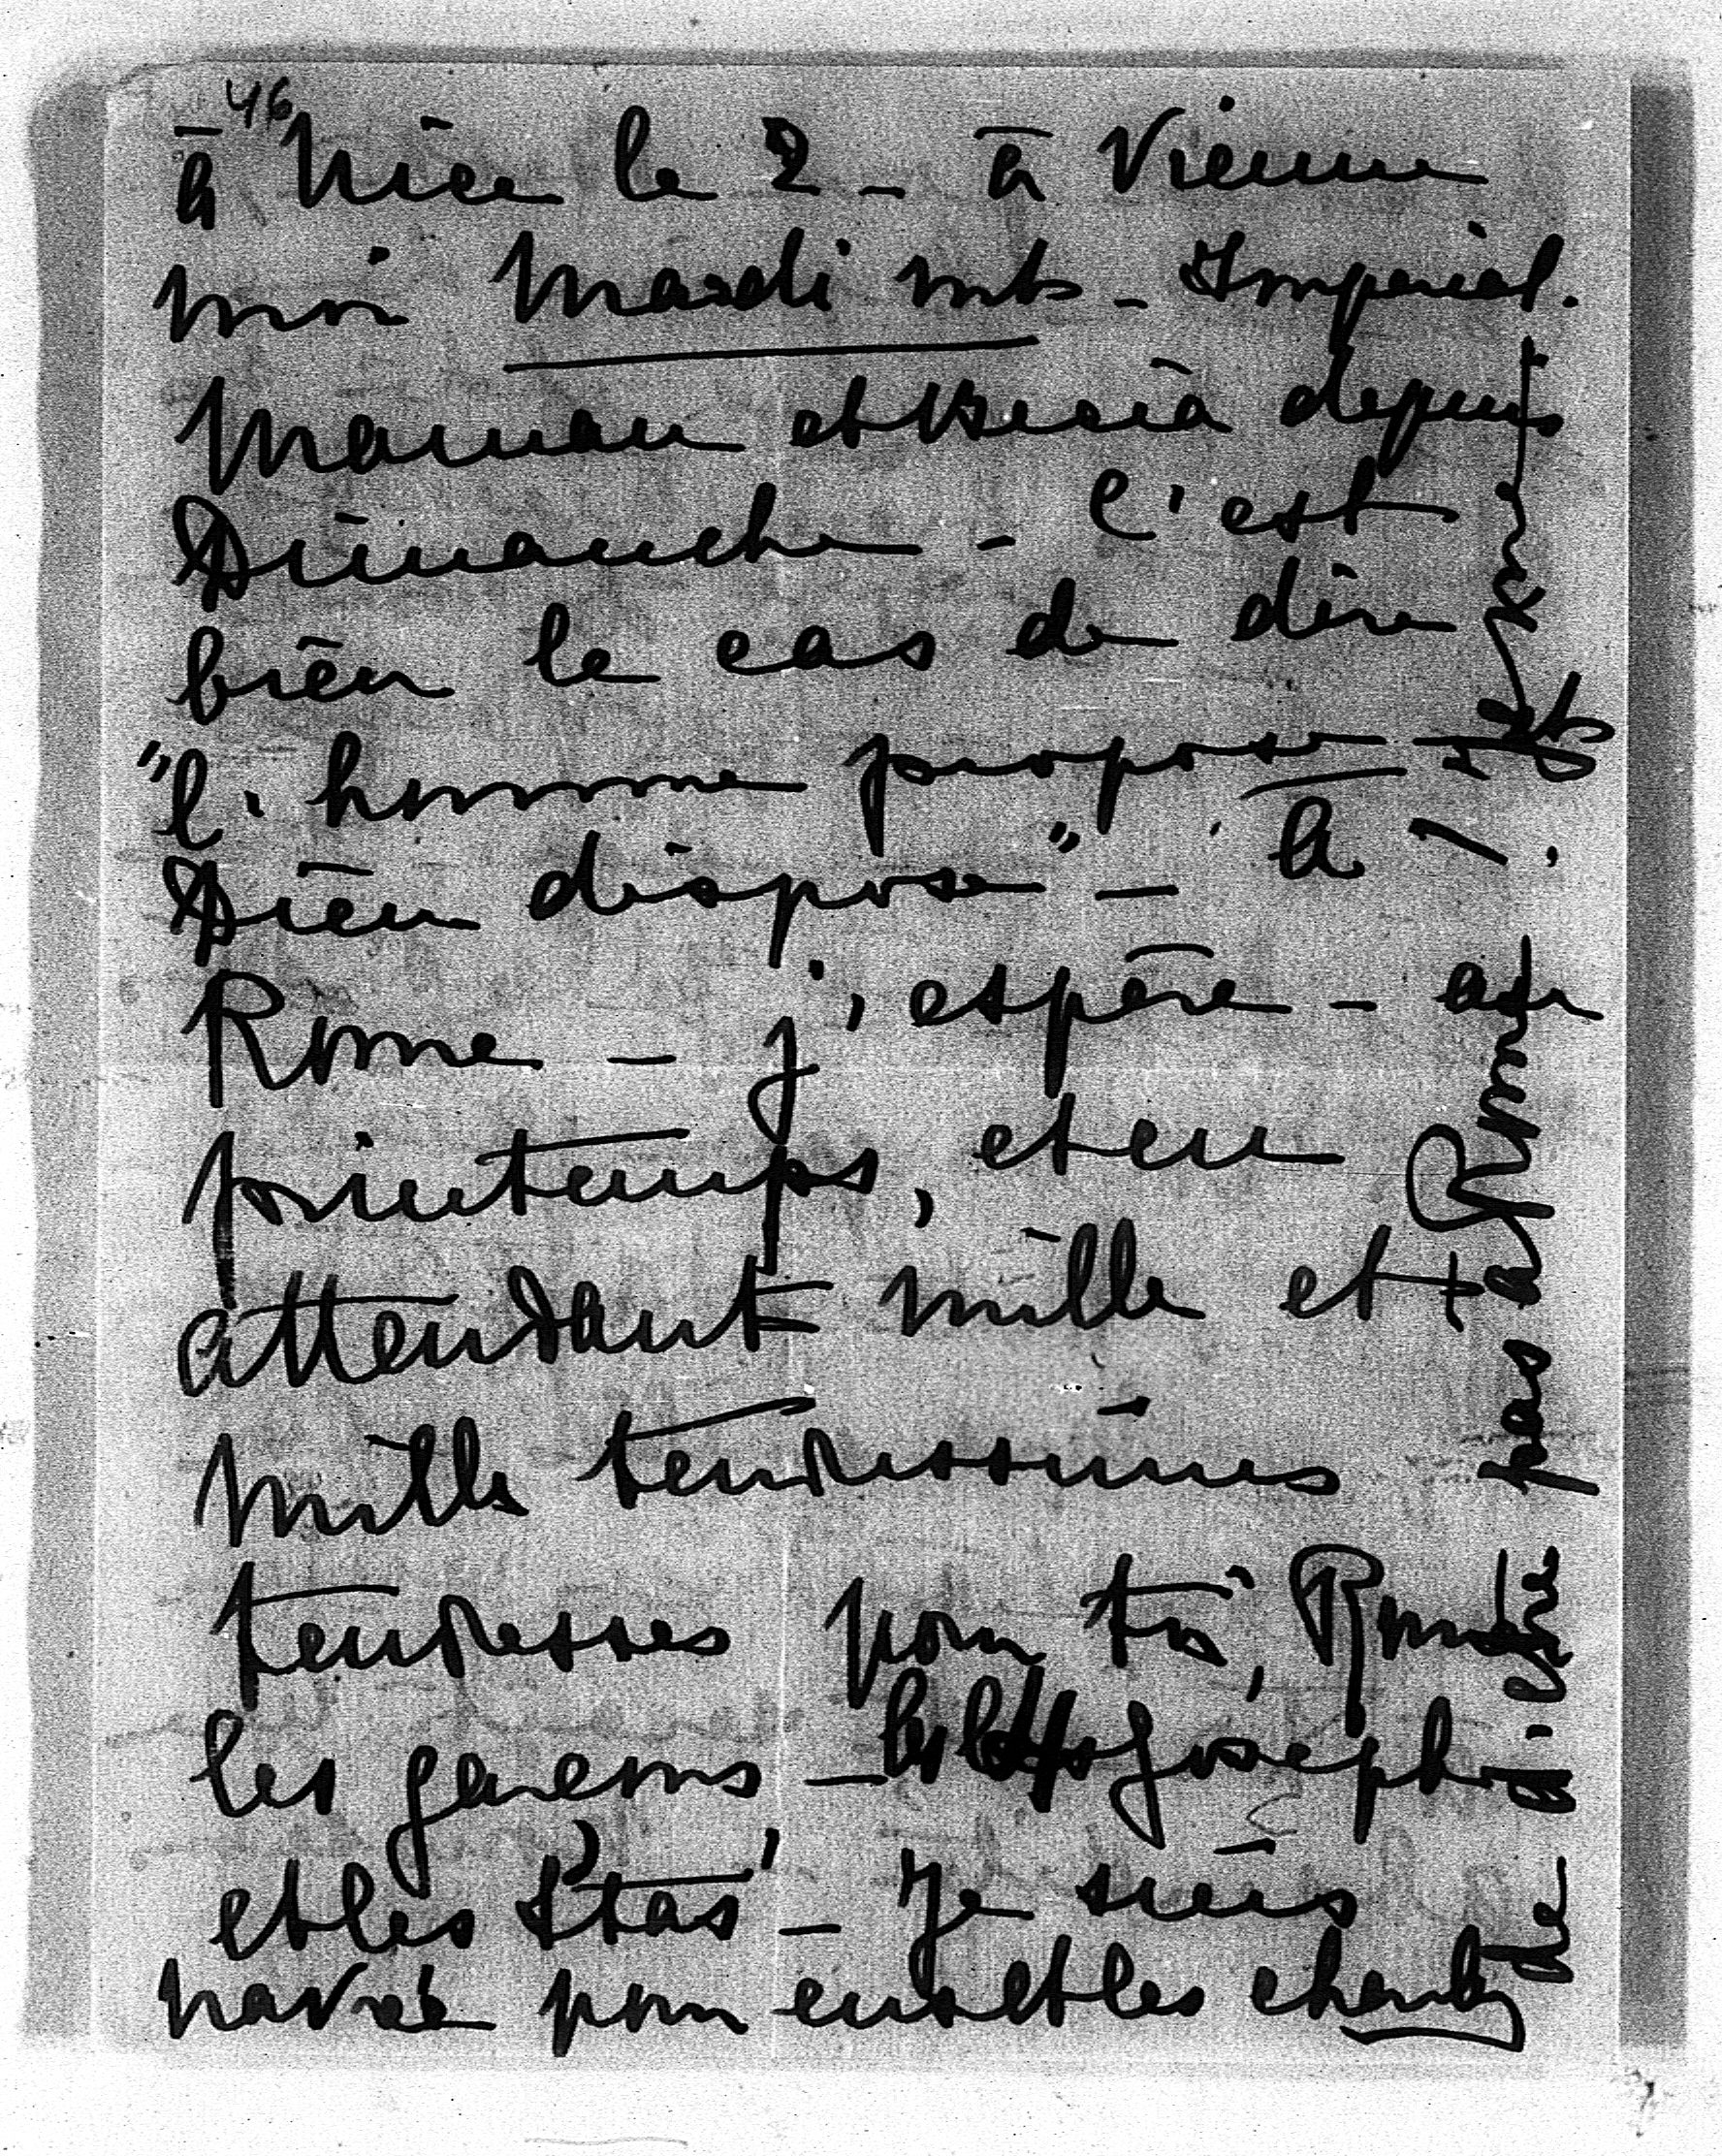 46
à Nice le 2 - à Vienne
moi Mardi - Imperial.
Maman et depuis
Dimanche - C'est
bien le cas de dire
"l'homme propose
Dieu dispose" - à
Rome - j'espère - au
printemps, et en
attendant mille et
mille tendrissimes
tendresses pour toi,
les garçons - Joseph
et les - Je suis
navrée pour eux et les
de d'être pas à Rome